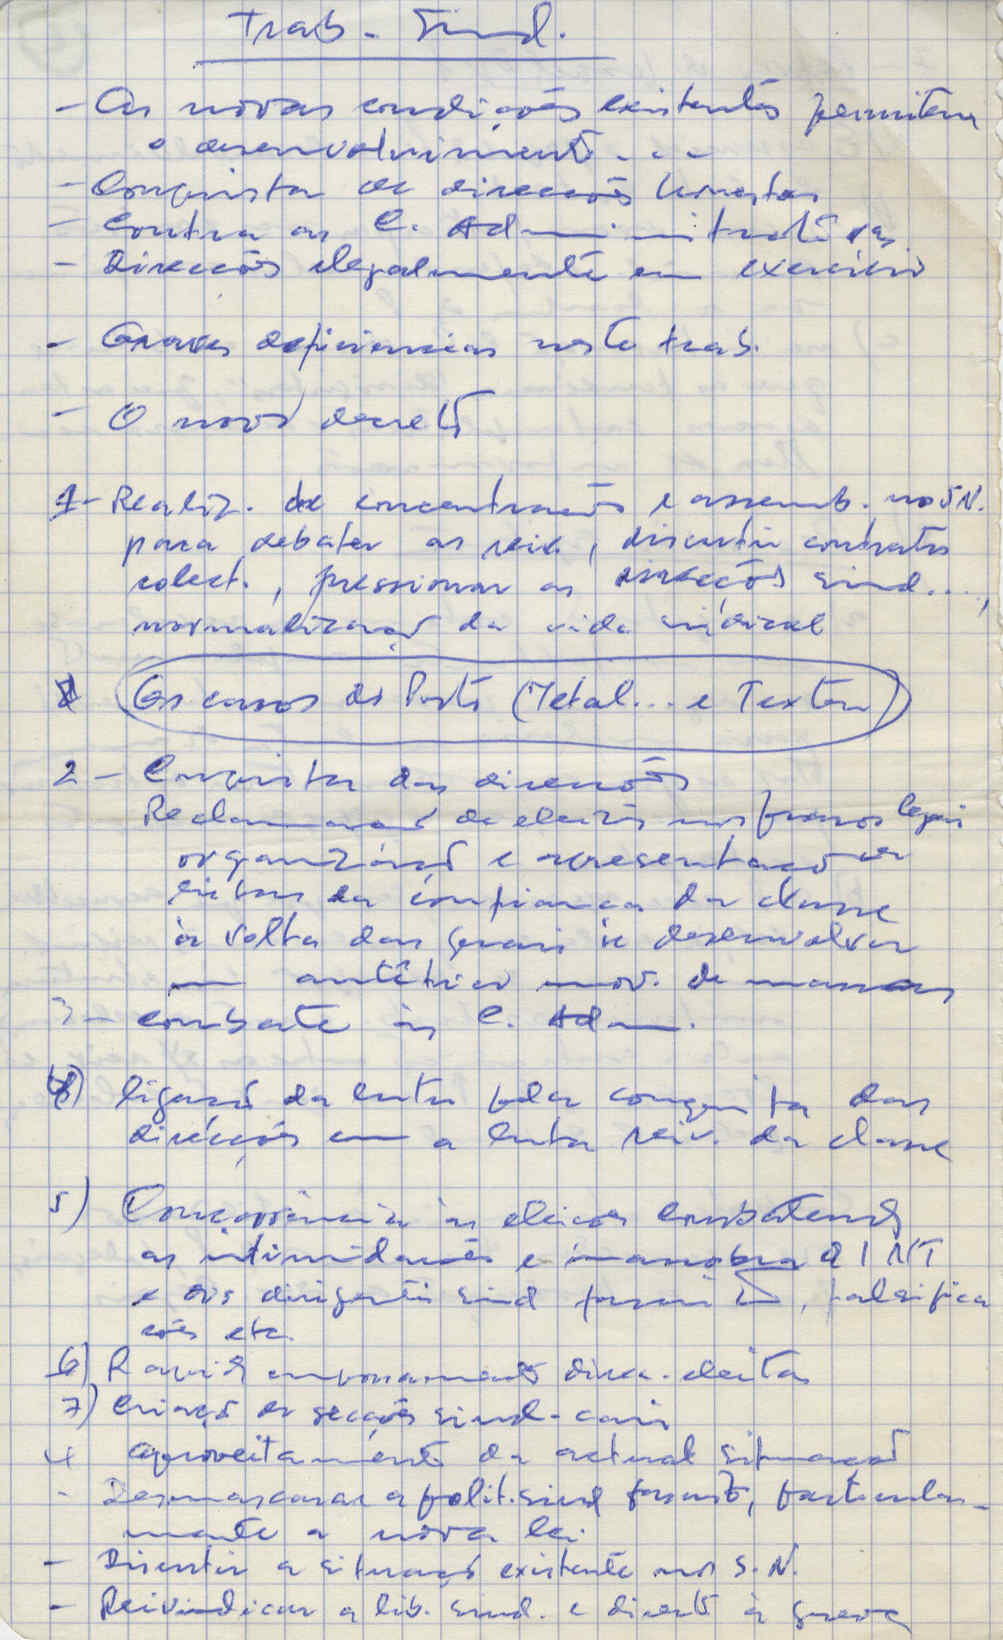 Trab. Sind.
- As novas condições existentes permitem
o desenvolvimento...
- Conquista de direcções honestas
- Contra as C. Administrativas
- Direcções ilegalmente em exercício
- Graves deficiencias neste trab.
- O novo decreto
1- Realiz. de concentrações e assemb. nos S.N.
para debater as reiv., discutir contratos
colect., pressionar as direcções sind....,
normalização da vida sindical
Os casos do Porto (Metal... e Texteis)
2 - Conquista das direcções
Reclamação de eleições nos prazos legais
organização e apresentação de
listas da confiança da classe
à volta das quais se desenvolva
um autêntico mov. de massas
3 - Combate às C. Adm.
4) ligação da luta pela conquista das
direcções com a luta reiv. da classe
5) Concorrência às eleições combatendo
as intimidações e manobras do INT
e dos dirigentes sind fascistas, falsifica
ções etc.
6) Rapido empossamento direc. eleitas
7) Criação de secções sind.
aproveitamento da actual situação
- Desmascarar a polit. sind fascista, particular-
mente a nova lei
- Discutir a situação existente nos S.N.
- Reivindicar a lib. sind. e direito à greve